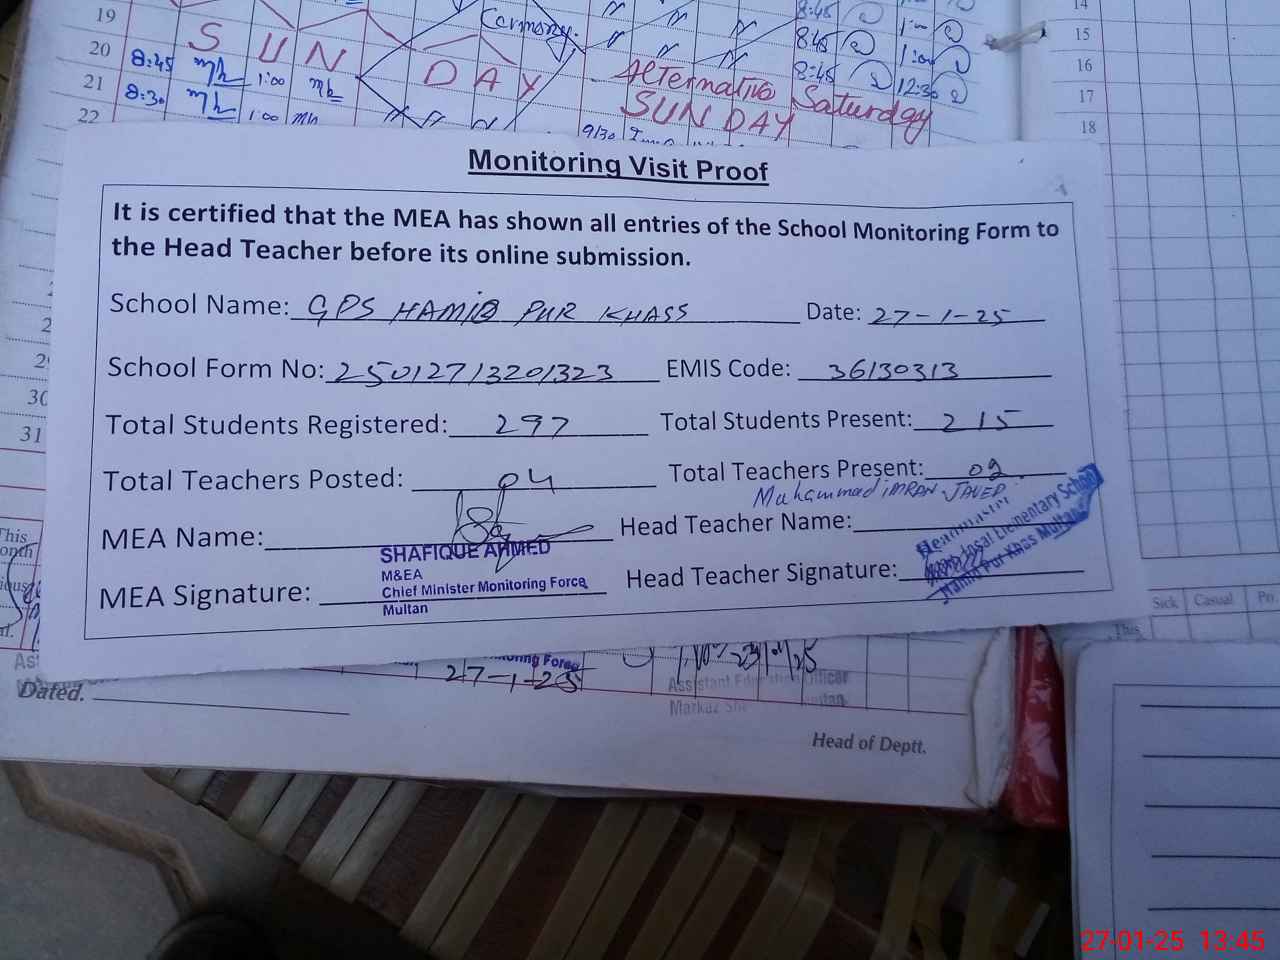 19
20 S U N
21 8:45 mh 1:00 mh
22 8:30 mh 1:00 mh
D A Y
Cermony.
8:45
8:45 1:00
8:45 12:30
Alternative Saturday
SUN DAY
9/30
14
15
16
17
18
Monitoring Visit Proof
It is certified that the MEA has shown all entries of the School Monitoring Form to
the Head Teacher before its online submission.
School Name: GPS HAMID PUR KHASS Date: 27-1-25
School Form No: 25012713201323 EMIS Code: 36130313
Total Students Registered: 297 Total Students Present: 215
Total Teachers Posted: 04 Total Teachers Present: 02
Muhammad IMRAN JAVED
MEA Name: Head Teacher Name:
SHAFIQUE AHMED
M&EA
Chief Minister Monitoring Force
Multan
MEA Signature: Head Teacher Signature:
Elementary School
Hamid Pur Khass Multan
30
31
27-1-25
Assistant Education Officer
Markaz
Dated.
Head of Deptt.
Sick Casual
This
27-01-25 13:45